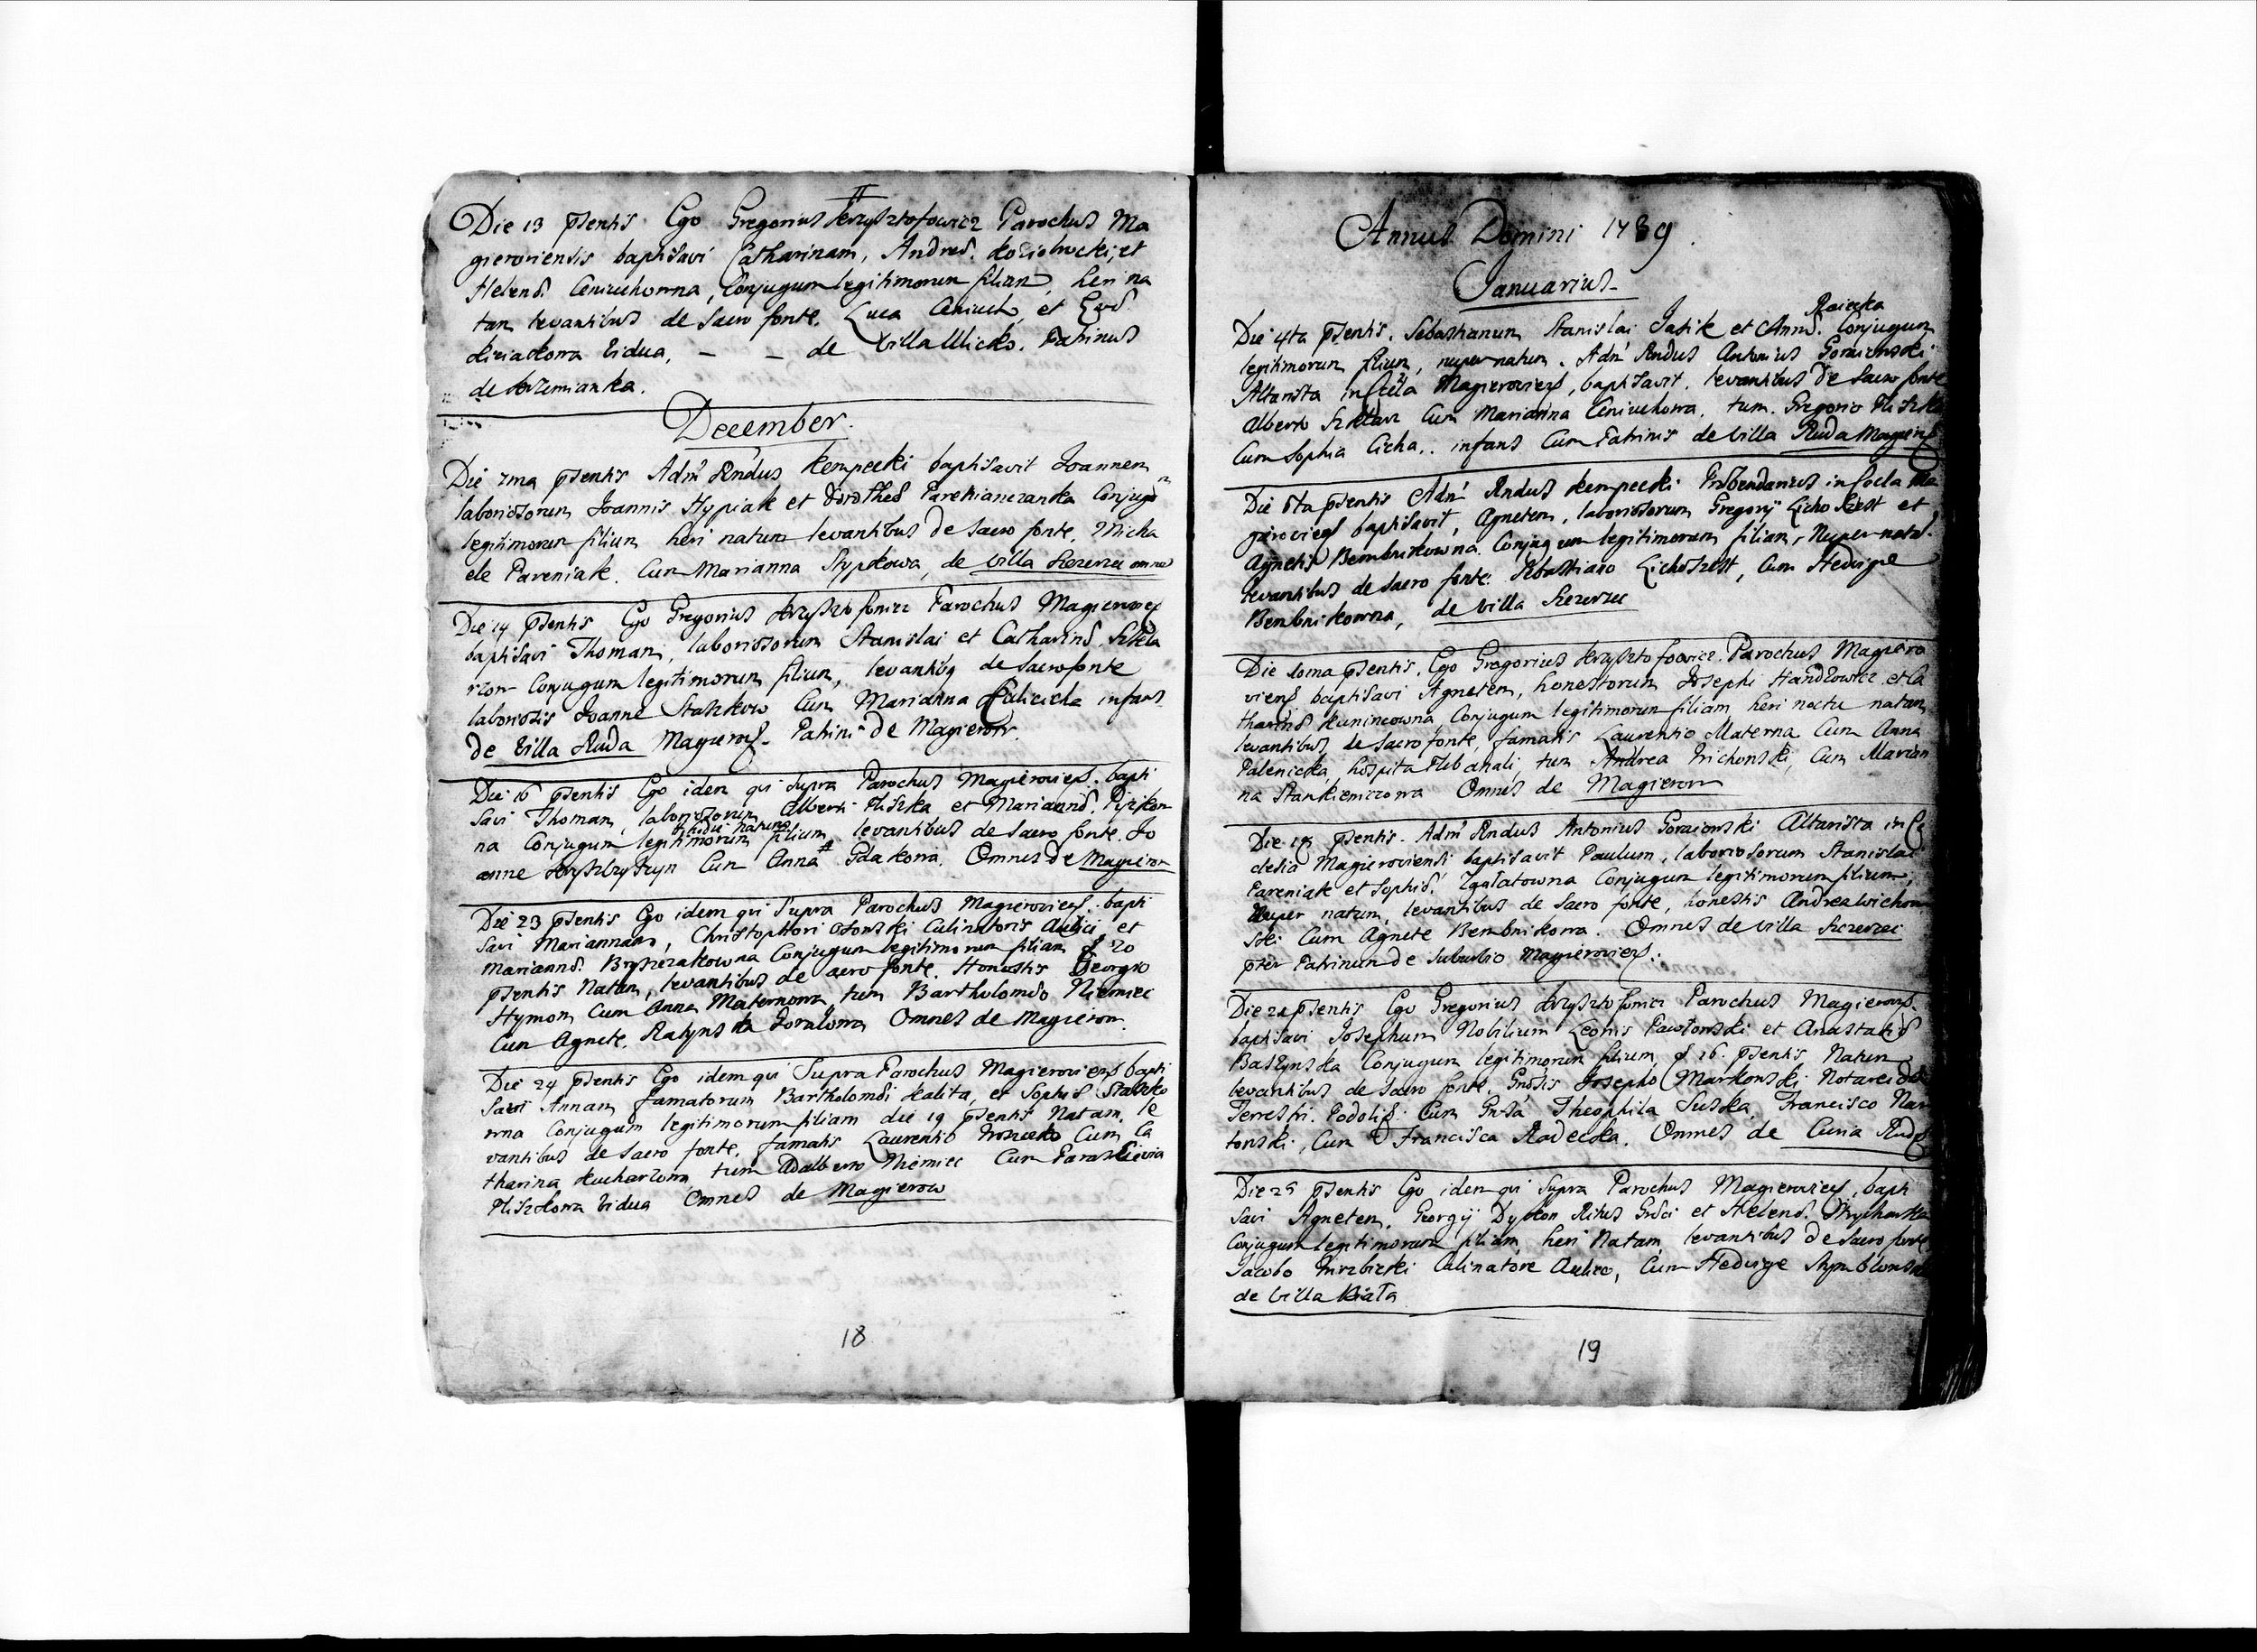 II
Die 13 pſentis Ego Gregorius Krzysztofowicz Parochus Ma
gieroviensis baptisavi Catharinam, Andreæ Koziobrocki, et
Helenæ Ceniuchowna, Conjugum legitimorum filiam, heri na
tam levantibus de Sacro fonte. Luca Ceniuch, et Evæ
Kiziakowa Vidua, – – de Villa Ulicko. Patrinus
de Krzemianka.
December.
Die 7ma pſentis Adm Rndus Kempecki baptisavit Joannem
laboriosorum Joannis Stypiak et Dorotheæ Pareniaczanka Conjugum
legitimorum filium heri natum levantibus de Sacro fonte, Micha
ele Pareniak. Cum Marianna Stypkowa, de Villa Szczerzec omnes
Die 14 pſentis Ego Gregorius Krzysztofowicz Parochus Magierovieſ
baptisavi Thomam, laboriosorum Stanislai et Catharinæ Szkla
rzow Conjugum legitimorum filium, levantibq de Sacro fonte
laboriosis Joanne Staszkow Cum Marianna infans
de Villa Ruda Magierovſ. Patrini de Magierow.
Die 16 pſentis Ego idem qui Supra Parochus Magierovieſ. bapti
savi Thomam, laboriosorum Alberti Pliszka et Mariannæ. Pizikow
na Conjugum legitimorum hodie natum filium, levantibus de Sacro fonte. Jo
anne Cum Anna Gdakowa. Omnes de Magierow
Die 23 pſentis Ego idem qui Supra Parochus Magierovieſ. bapti
savi Mariannam, Christophori Osowski Culinatoris Aulici et
Mariannæ. Bryszczakowna Conjugum legitimorum filiam d 20
pſentis Natam, levantibus de sacro fonte. Honestis Georgio
Hymon Cum Anna Maternowa, tum Bartholomæo Niemiec
Cum Agnete. Omnes de Magierow.
Die 24 pſentis Ego idem qui Supra Parochus Magierovieſ bapti
savi Annam famatorum Bartholomæi Kalita, et Sophiæ Staszko
wna Conjugum legitimorum filiam die 19 pſentis Natam, le
vantibus de Sacro fonte. famatis Laurentio Mroczko Cum Ca
tharina Kucharzowa, tum Adalberto Niemiec Cum Paraskievia
Pliszkowa Vidua Omnes de Magierow
18
Annus Domini 1789.
Januarius
Die 4ta pſentis. Sebastianum Stanislai Jasik et Annæ. Raiecka Conjugum
legitimorum filium, nuper natum. Adm Rndus Antonius Goraiewski
Altarista in Eccla Magierovieſ, baptisavit. levantibus de Sacro fonte
Alberto Szklarz Cum Marianna Ceniuchowa. tum. Gregorio Pliszka
Cum Sophia Cicha.. infans Cum Patrinis de Villa Ruda Magierovſ
Die 6ta pſentis Adm Rndus Kempecki Præbendarius in Eccla Ma
gierovieſ baptisavit, Agnetem, laboriosorum Gregorij Lichoszest et
Agnetis Bembnikowna. Conjugum legitimorum filiam, Nuper natā.
levantibus de Sacro fonte: Sebastiano Lichoszest, Cum Hedvige
Bembnikowna, de Villa Szczerzec
Die 10ma pſentis. Ego Gregorius Krzysztofowicz. Parochus Magiero
vienſ baptisavi Agnetem, honestorum Josephi Handzowicz et Ca
tharinæ Kunincowna, Conjugum legitimorum filiam, heri noctu natam
levantibus, de Sacro fonte, famatis Laurentio Materna Cum Anna
Palenicka, hospita Plebanali, tum Andrea Wichonski, Cum Marian
na Stankiewiczowa Omnes de Magierow
Die 15 pſentis. Adm Rndus Antonius Goraiewski Altarista in Ec
clesia Magieroviensi baptisavit Paulum, laboriosorum Stanislai
Pareniak et Sophiæ. Zgałatowna Conjugum legitimorum filium,
Nuper natum, levantibus de Sacro fonte, honestis Andrea Wichon
ski Cum Agnete Bembnikowa. Omnes de Villa Szczerzec
pter Patrinum de Suburbio Magierovieſ.
Die 21 pſentis Ego Gregorius Krzysztofowicz Parochus Magierovſ.
baptisavi Josephum Nobilium Leonis Pawłowski et Anastasiæ
Baszynska Conjugum legitimorum filium, d 16. pſentis Natum
levantibus de Sacro fonte. Gnosis Josepho Markowski Notario
Terrestri. Podoliæ. Cum Gnsa Theophila Suska, Francisco Nar
towski, Cum Francisca Radecka. Omnes de Curia Rudæ
Die 25 pſentis Ego idem qui Supra Parochus Magierovieſ, bapti
savi Agnetem. Georgij Dyskon Ritus Græci et Helenæ.
Conjugum legitimorum filiam, heri Natam, levantibus de Sacro fonte
Jacobo Culinatore Aulico, Cum Hedvige
de Villa Biała
19